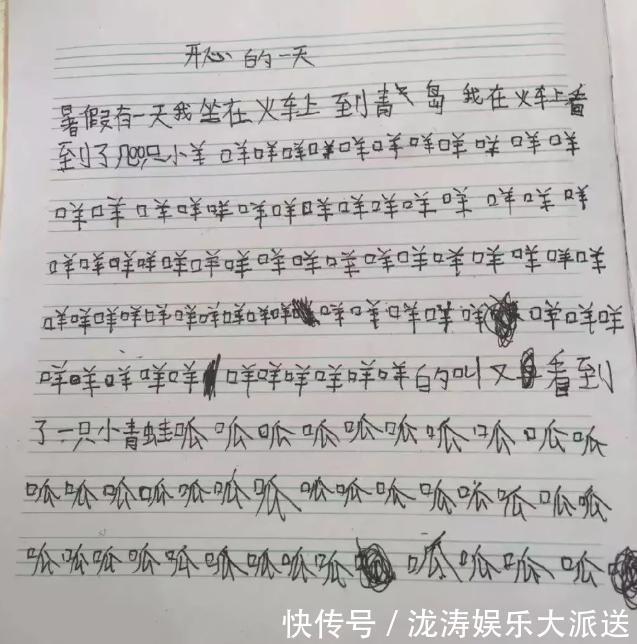 开心的一天
暑假有一天我坐在火车上到青岛我在火车上看
到了几只小羊咩咩咩咩咩咩咩咩咩咩咩
咩咩咩咩咩咩咩咩咩咩咩咩咩咩咩
咩咩咩咩咩咩咩咩咩咩咩咩咩咩咩咩咩
咩咩咩咩咩咩咩咩咩咩咩咩咩咩咩咩咩咩
咩咩咩咩咩咩咩咩咩咩咩的叫又看到
了一只小青蛙呱呱呱呱呱呱呱呱呱呱
呱呱呱呱呱呱呱呱呱呱呱呱呱呱呱
呱呱呱呱呱呱呱呱呱呱呱呱呱
快传号 / 泷涛娱乐大派送